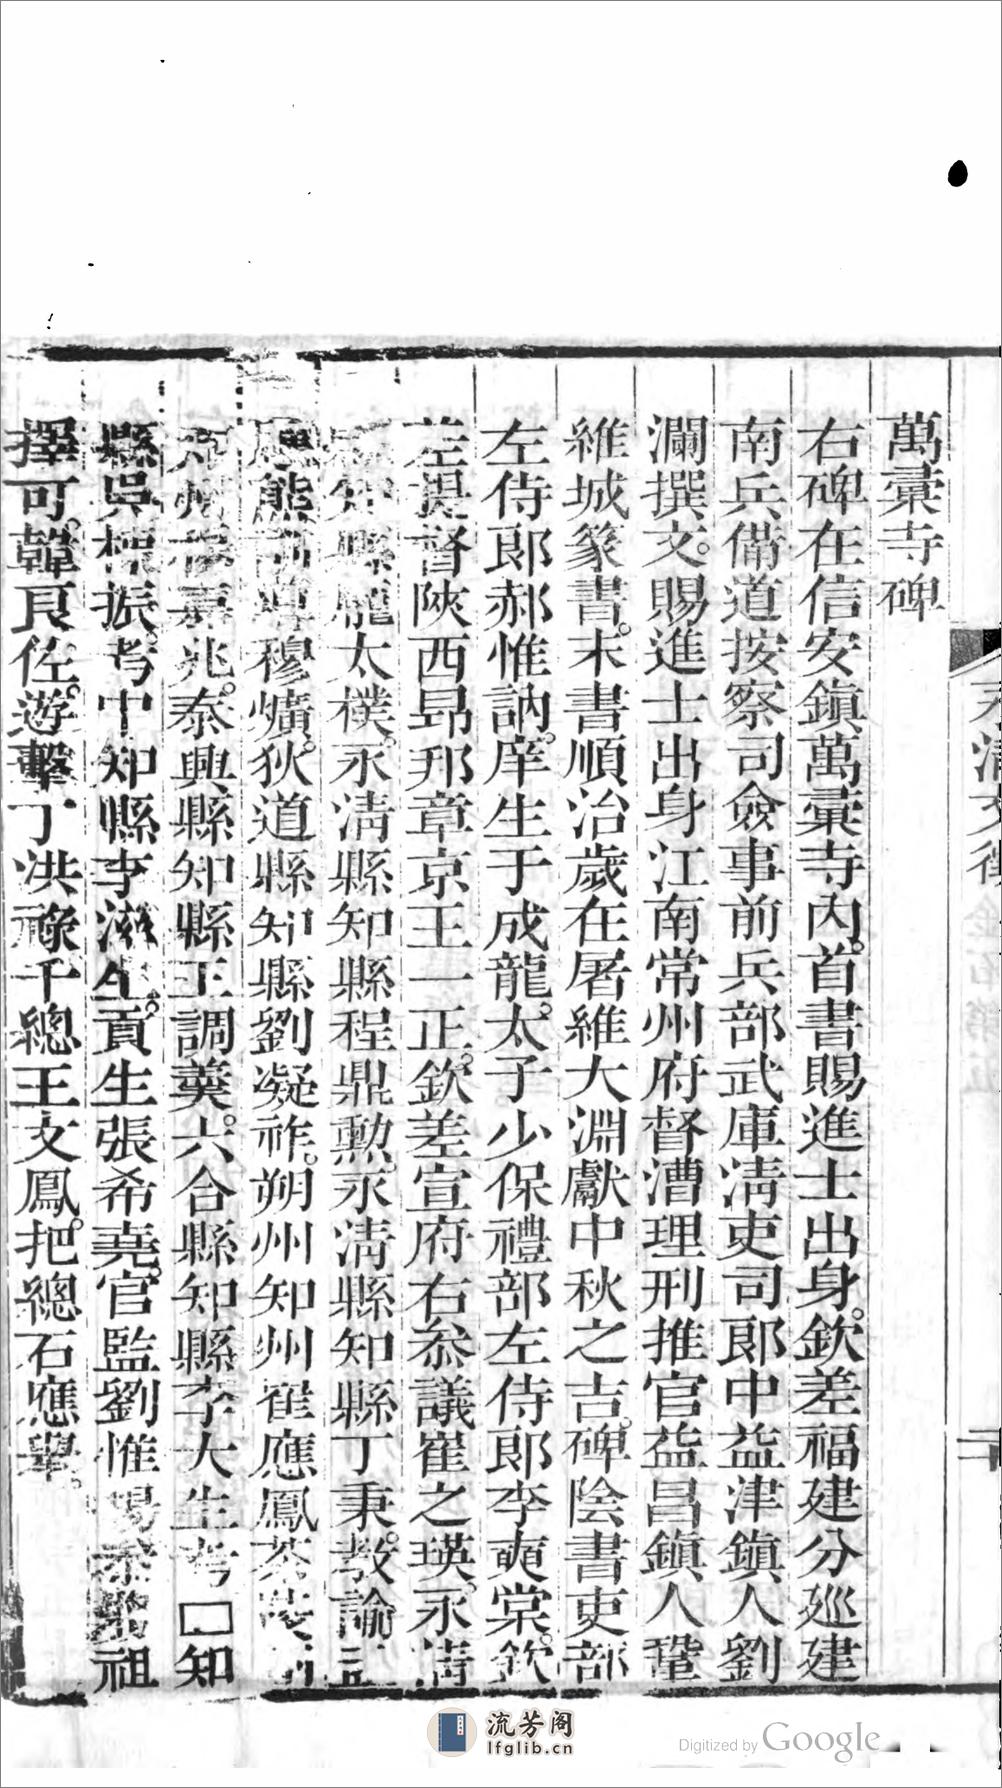 萬彙寺碑
右碑在信安鎮萬彙寺內首書賜進士出身欽差福建分巡建
南兵備道按察司僉事前兵部武庫清吏司郎中益津鎮人劉
瀾撰文賜進士出身江南常州府督漕理刑推官益昌鎮人鞏
維城篆書末書順治歲在屠維大淵獻中秋之吉碑陰書吏部
左侍郎郝惟訥庠生于成龍太子少保禮部左侍郎李奭棠欽
差提督陝西昻邦章京王一正欽差宣府右叅議崔之瑛永清
知縣龐太樸永清縣知縣程鼎勲永清縣知縣丁秉教諭
熊穆爌狄道縣知縣劉凝祚朔州知州崔應鳳
州兆泰興縣知縣王調羹六合縣知縣李大生考□知
縣吳標振考中知縣李滋生貢生張希堯官監劉惟祖
擇可韓良佐遊擊丁洪祿千總王文鳳把總石應舉
大清文徵
金石第五
二十
流芳阁
lfglib.cn
Digitized by Google